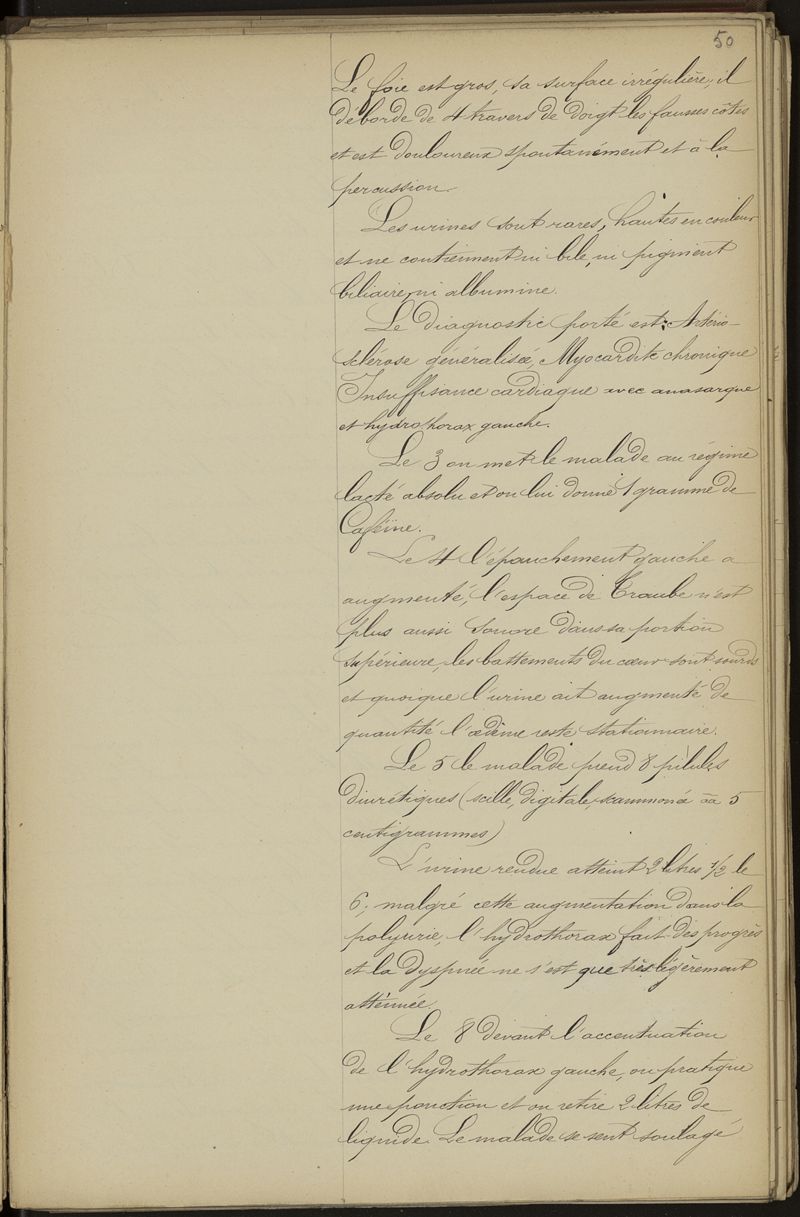 50
Le foie est gros, sa surface irrégulière, il
déborde de 4 travers de doigt les fausses côtes
et est douloureux spontanément et à la
percussion.
Les urines sont rares, hautes en couleur
et ne contiennent ni bile, ni pigment
biliaire, ni albumine.
Le diagnostic porté est: Artério-
sclérose généralisée, Myocardite chronique
Insuffisance cardiaque avec anasarque
et hydrothorax gauche.
Le 3 on met le malade au régime
lacté absolu et on lui donne 1 gramme de
Caféine.
Le 4 l'épanchement gauche a
augmenté, l'espace de Traube n'est
plus aussi sonore dans sa portion
supérieure, les battements du cœur sont sourds
et quoique l'urine ait augmenté de
quantité l'œdème reste stationnaire.
Le 5 le malade prend 8 pilules
diurétiques (scille, digitale, scammonée āa 5
centigrammes)
L'urine rendue atteint 2 litres 1/2 le
6; malgré cette augmentation dans la
polyurie, l'hydrothorax fait des progrès
et la dyspnée ne s'est que très légèrement
atténuée.
Le 8 devant l'accentuation
de l'hydrothorax gauche, on pratique
une ponction et on retire 2 litres de
liquide. Le malade se sent soulagé